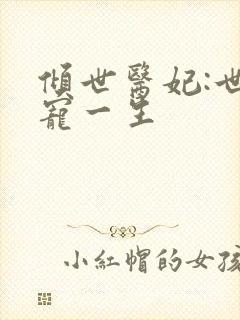 傾世醫妃:世
寵一生
小紅帽的女孩